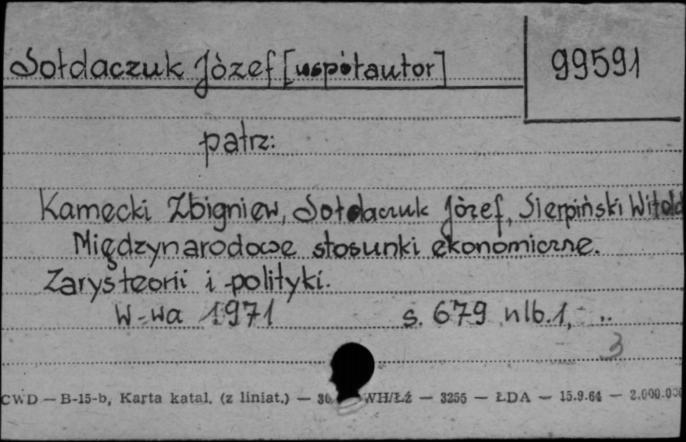 Sołdaczuk Józef [współautor] 99591
patrz:
Kamecki Zbigniew, Sołdaczuk Józef, Sierpiński Witold
Międzynarodowe stosunki ekonomiczne.
Zarys teorii i polityki.
W-wa 1971 s. 679 nlb. 1, ..
3
CWD — B-15-b, Karta katal. (z liniat.) — WH/Łź — 3255 — ŁDA — 15.9.64 — 2.000.000